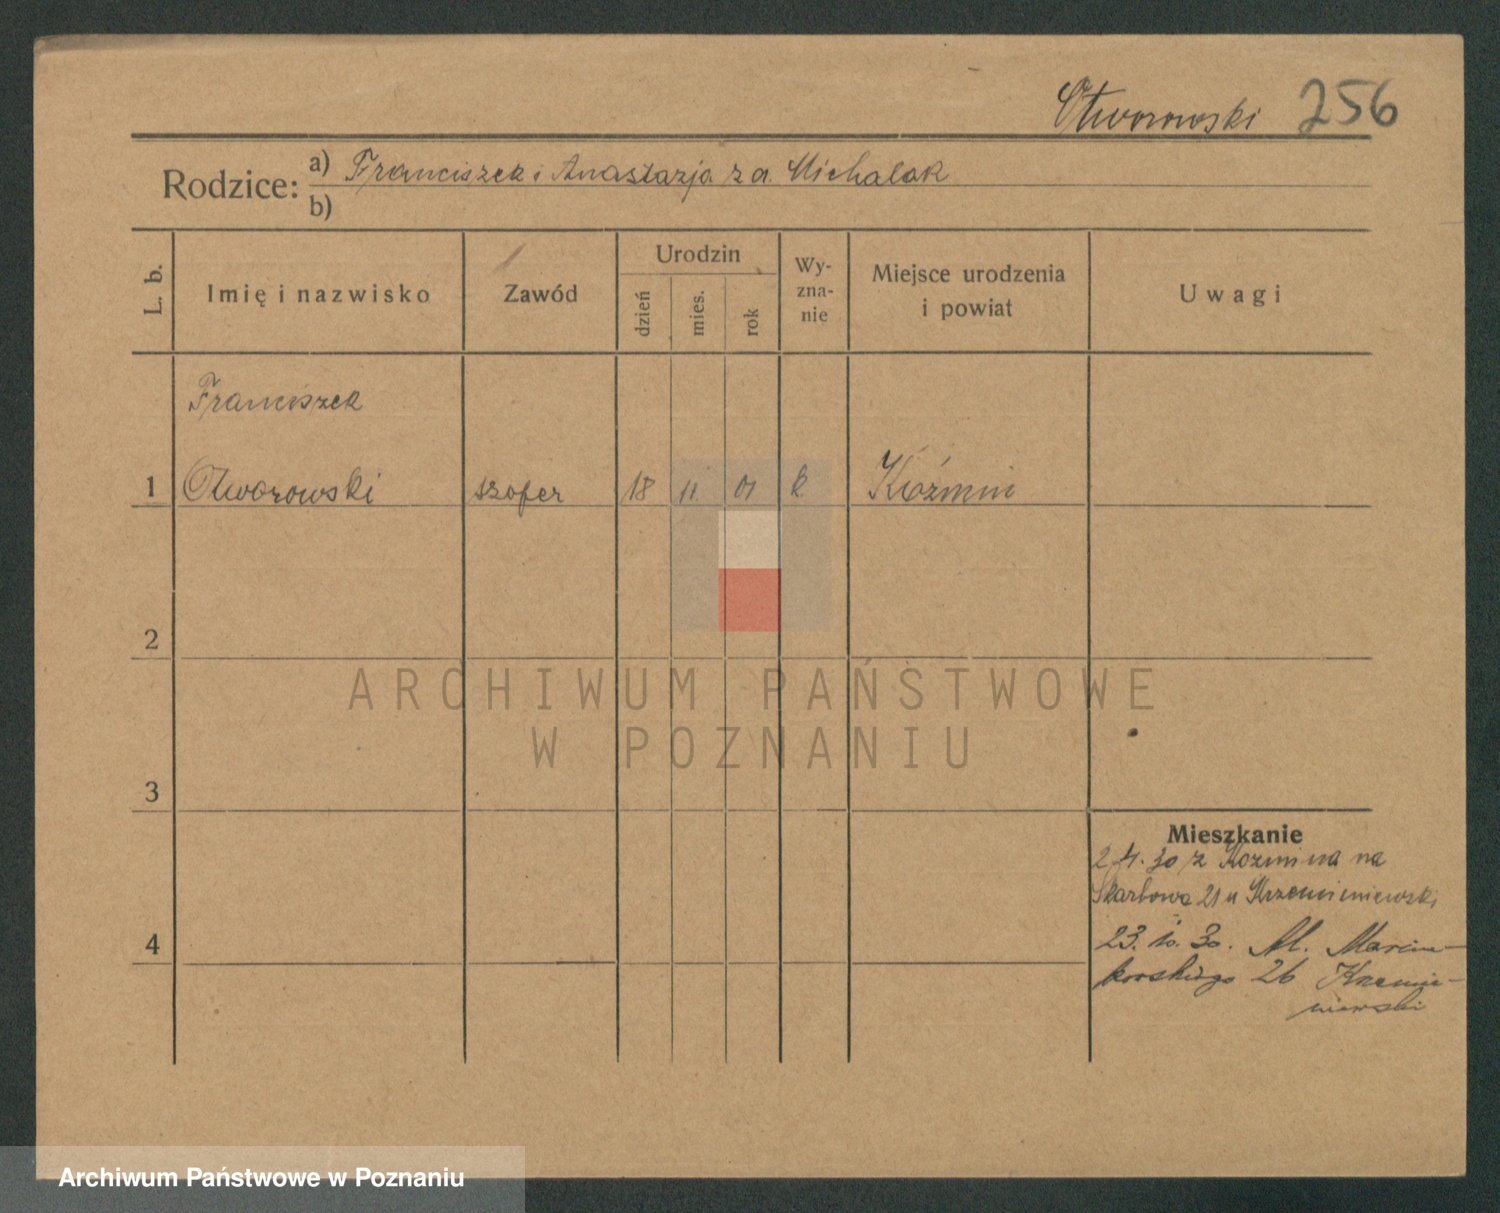 Otworowski 256
Rodzice: a) Franciszek i Anastazja z d. Michalak
b)
L. b.
Imię i nazwisko
Zawód
Urodzin
dzień
mies.
rok
Wy-
zna-
nie
Miejsce urodzenia
i powiat
Uwagi
Franciszek
1 Otworowski szofer 18 11 01 k Koźmin
2
3
Mieszkanie
2.4.30 z Kozmina na
Skarbowa 21 u Krzemieniewski
4
23. 10. 30. Al. Marcin-
kowskiego 26 Krzemie-
niewski
ARCHIWUM PAŃSTWOWE
W POZNANIU
Archiwum Państwowe w Poznaniu